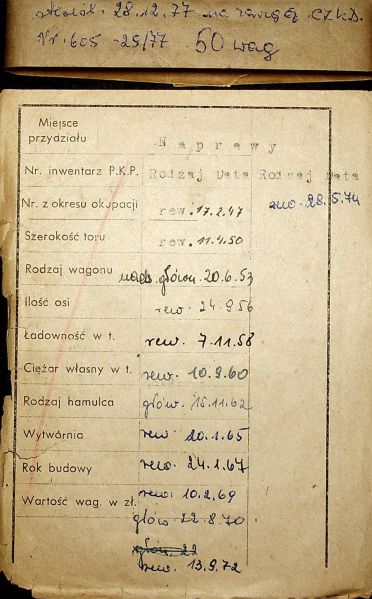 28.12.77 na CZKD.
Nr. 605-25/77 50 wag
Miejsce przydziału
Naprawy
Nr. inwentarz P.K.P. Rodzaj Data Rodzaj Data
Nr. z okresu okupacji rew. 17.2.47 28.5.74
Szerokość toru rew. 11.4.50
Rodzaj wagonu główn. 20.6.53
Ilość osi rew. 24.9.56
Ładowność w t. rew. 7.11.58
Ciężar własny w t. rew. 10.9.60
Rodzaj hamulca główn. 15.11.62
Wytwórnia rew 20.1.65
Rok budowy rew. 24.1.67
Wartość wag. w zł. rew. 10.2.69
główn 22.8.70
rew. 13.9.72